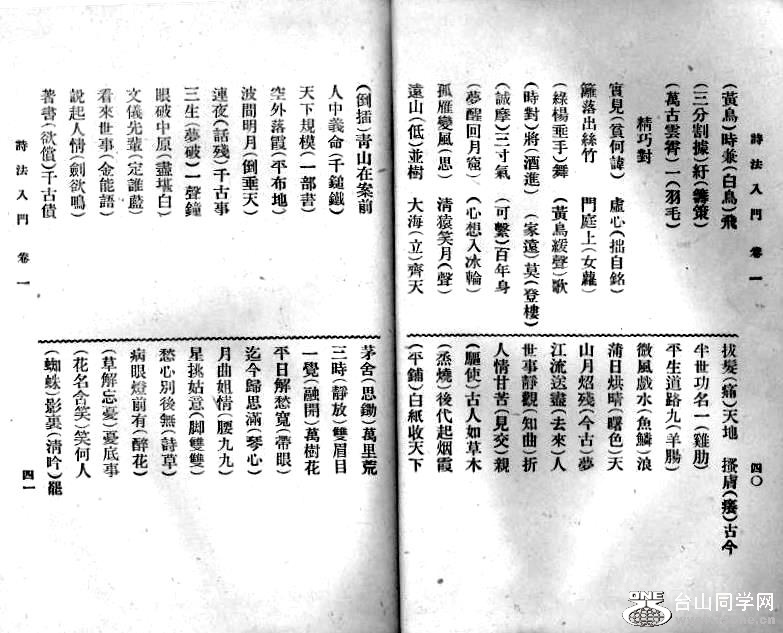 詩法入門 卷一
(黃鳥)時兼(白鳥)飛
(三分割據)紆(籌策)
(萬古雲霄)一(羽毛)
精巧對
實見(貧何諱) 虛心(拙自銘)
籬落出絲竹 門庭上(女蘿)
(綠楊垂手)舞 (黃鳥緩聲)歌
(時對)將(酒進) (家遠)莫(登樓)
(誠摩)三寸氣 (可繫)百年身
(夢醒)回月窟 (心想)入冰輪
孤雁變風(思) 清猿笑月(聲)
遠山(低)並樹 大海(立)齊天
拔髮(痛)天地 搔膚(癢)古今
半世功名一(雞肋)
平生道路九(羊腸)
微風戲水(魚鱗)浪
蒲日烘晴(曙色)天
山月炤殘(今古)夢
江流送盡(去來)人
世事靜觀(知曲)折
人情甘苦(見交)親
(驅使)古人如草木
(烝燒)後代起烟霞
(平鋪)白紙收天下
四〇
(倒插)青山在案前
人中義命(千鎚鐵)
天下規模(一部書)
空外落霞(平布地)
波間明月(倒垂天)
連夜(話殘)千古事
三生(夢破)一聲鐘
眼破中原(盡堪白)
文儀先輩(定誰藍)
看來世事(金能語)
說起人情(劍欲鳴)
著書(欲償)千古債
詩法入門 卷一
茅舍(思鋤)萬里荒
三時(靜放)雙眉目
一覺(融開)萬樹花
平日解愁寬(帶眼)
迄今歸思滿(琴心)
月曲姐情(腰九九)
星挑姑意(脚雙雙)
愁心別後無(詩草)
病眼燈前有(醉花)
(草解忘憂)憂底事
(花名含笑)笑何人
(蜘蛛)影裏(清吟)罷
四一
ONE
台山同学网